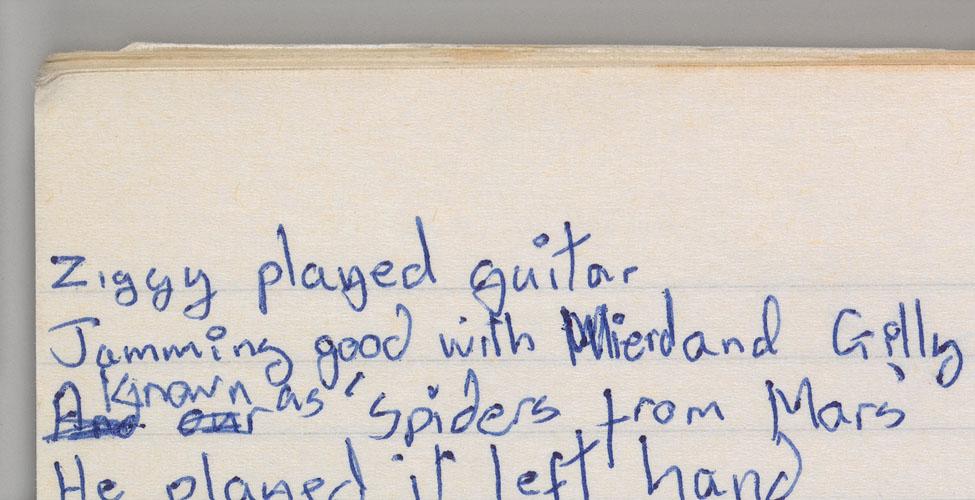 Ziggy played guitar
Jamming good with Wierd and Gilly
And our Known as 'Spiders from Mars'
He played it left hand